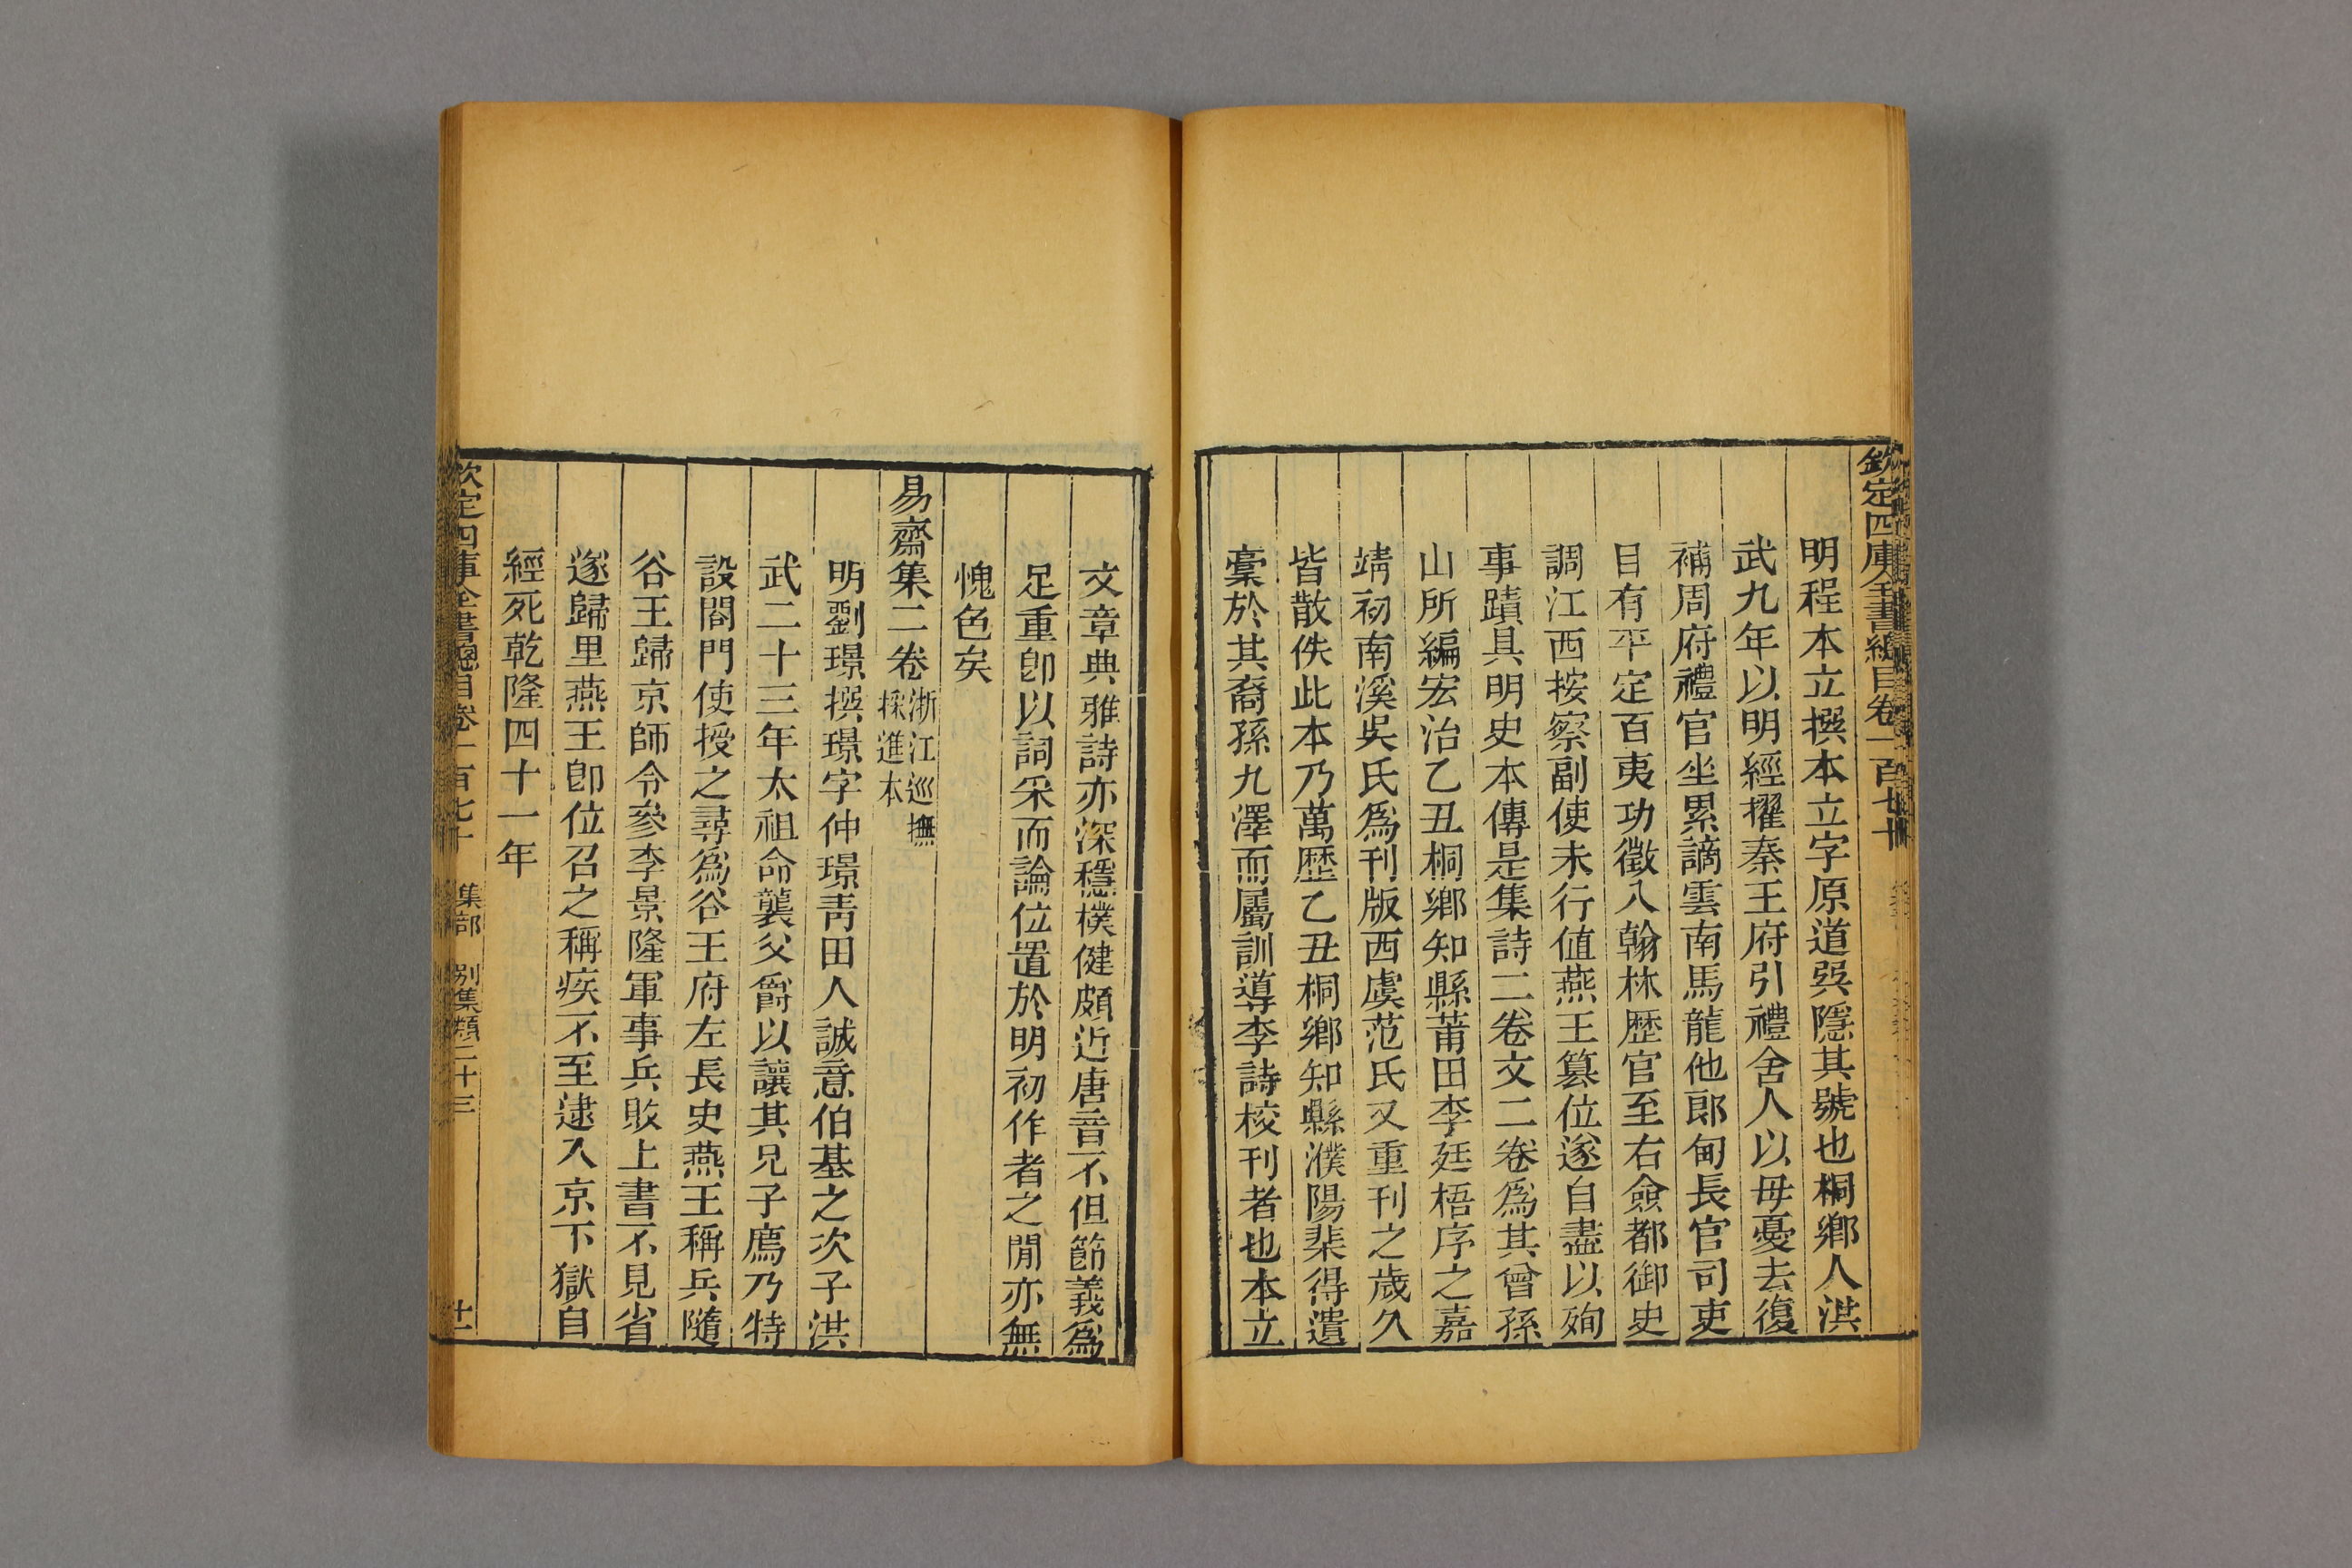 欽定四庫全書總目卷一百七十
明程本立撰本立字原道巽隱其號也桐鄉人洪
武九年以明經擢秦王府引禮舍人以母憂去復
補周府禮官坐累謫雲南馬龍他郎甸長官司吏
目有平定百夷功徵入翰林歷官至右僉都御史
調江西按察副使未行値燕王簒位遂自盡以殉
事蹟具明史本傳是集詩二卷文二卷爲其曾孫
山所編宏治乙丑桐鄉知縣莆田李廷梧序之嘉
靖初南溪吳氏爲刊版西虞范氏又重刊之歲久
皆散佚此本乃萬歷乙丑桐鄉知縣濮陽棐得遺
稾於其裔孫九澤而屬訓導李詩校刊者也本立
文章典雅詩亦深穩樸健頗近唐音不但節義爲
足重卽以詞采而論位置於明初作者之閒亦無
愧色矣
易齋集二卷浙江巡撫採進本
明劉璟撰璟字仲璟靑田人誠意伯基之次子洪
武二十三年太祖命襲父爵以讓其兄子廌乃特
設閤門使授之尋爲谷王府左長史燕王稱兵隨
谷王歸京師令參李景隆軍事兵敗上書不見省
遂歸里燕王卽位召之稱疾不至逮入京下獄自
經死乾隆四十一年
欽定四庫全書總目卷一百七十 集部 別集類二十三 廿一